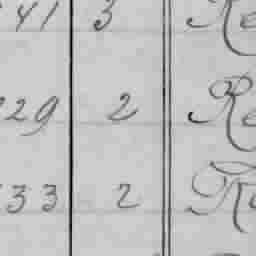 41 3 Re
29 2 Re
33 2 Re